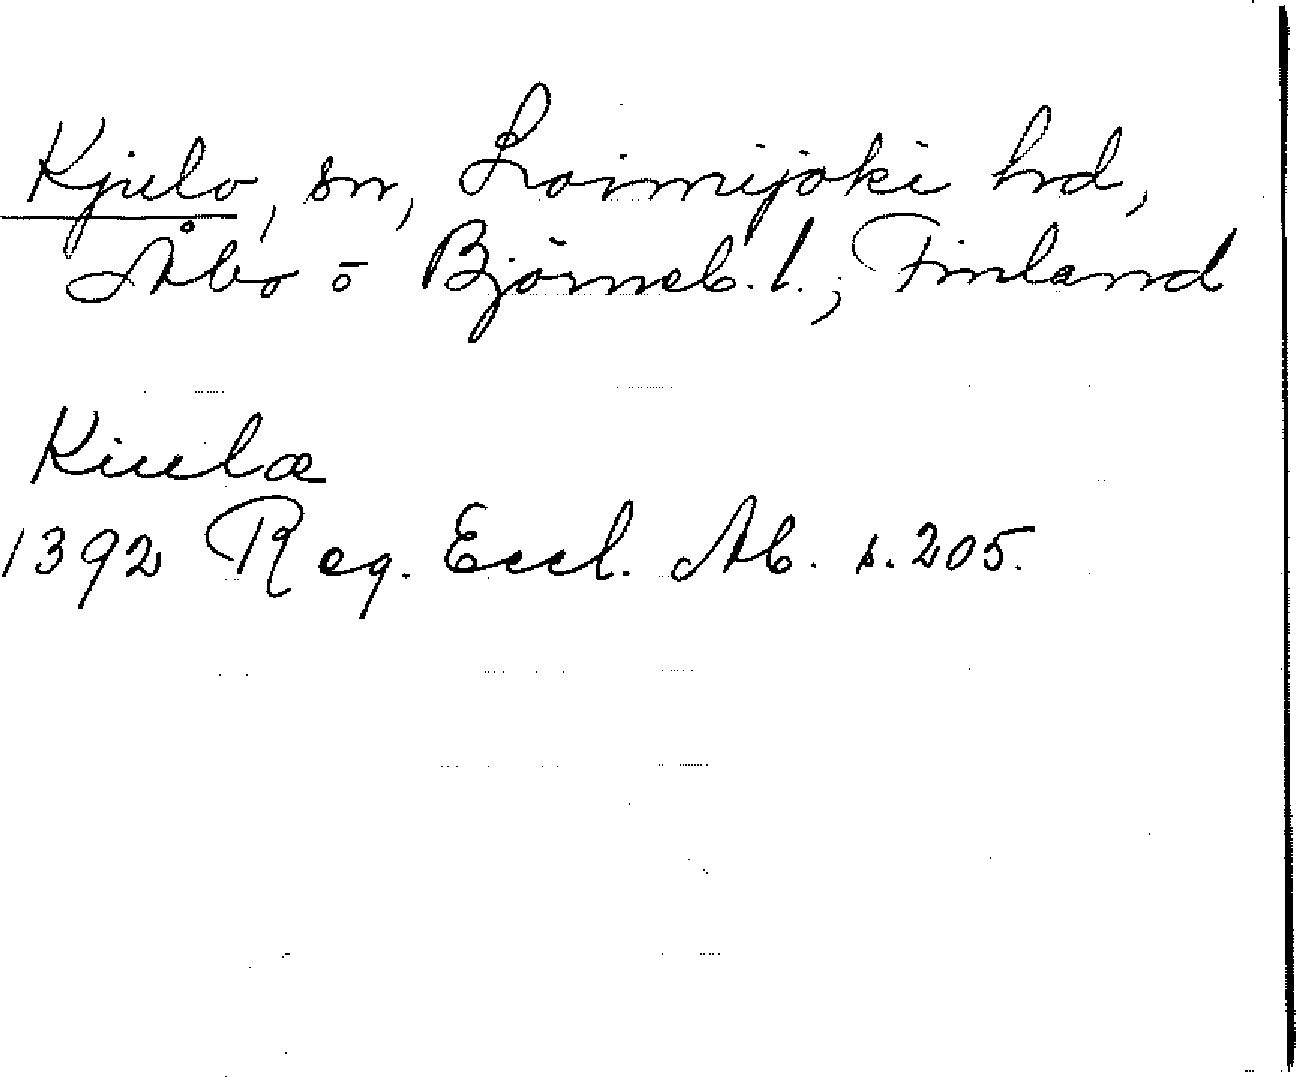 Kjulo, sn, Loimijoki hd,
Åbo o Björneb. l., Finland
Kiula
1392 Reg. Eccl. Ab. s. 205.